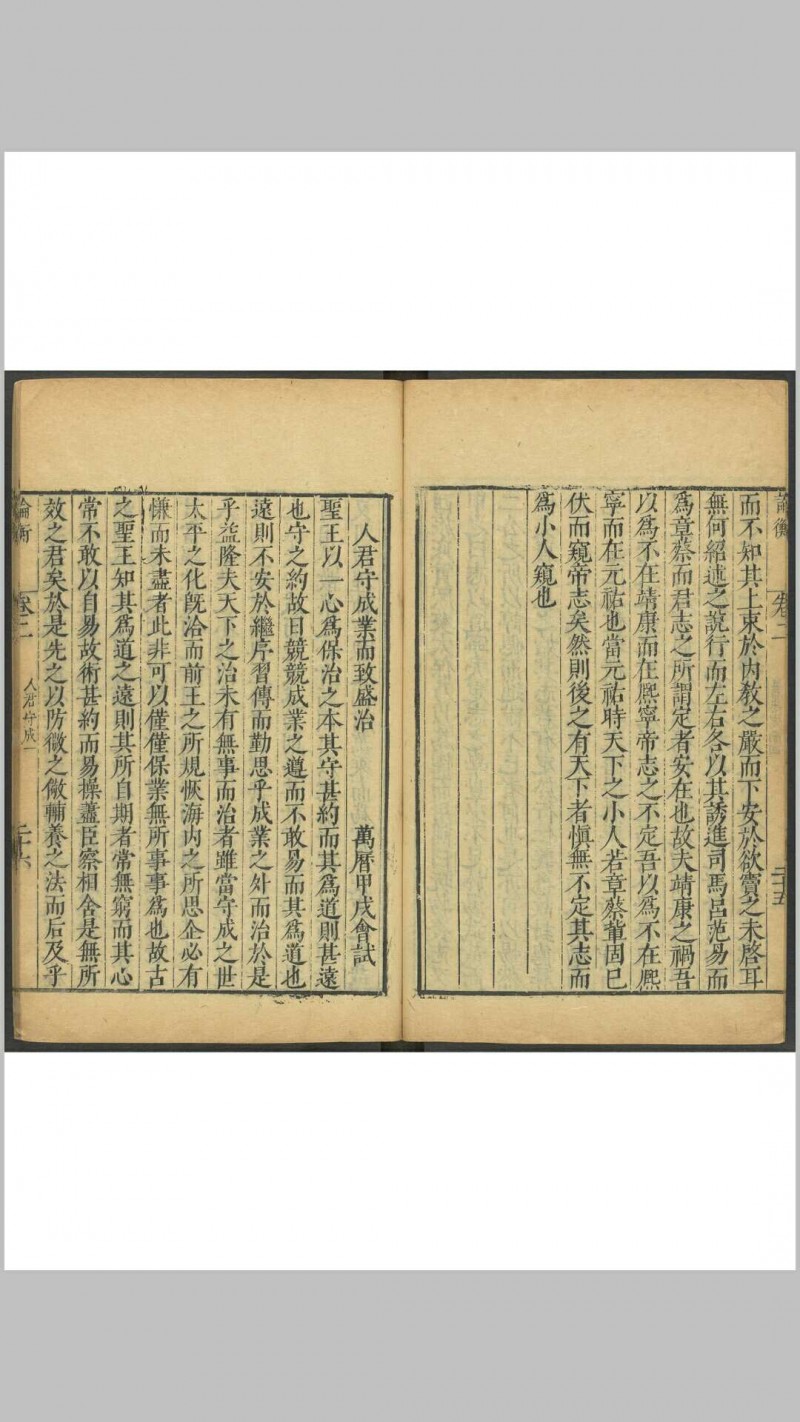 論衡 卷二 二十五
而不知其上束於内教之嚴而下安於欲竇之未啓耳
無何紹述之說行而左右各以其誘進司馬呂范易而
爲章蔡而君志之所謂定者安在也故夫靖康之禍吾
以爲不在靖康而在熈寧帝志之不定吾以爲不在熈
寧而在元祐也當元祐時天下之小人若章蔡輩固已
伏而窺帝志矣然則後之有天下者慎無不定其志而
爲小人窺也
人君守成業而致盛治 萬曆甲戌會試
聖王以一心爲保治之本其守甚約而其爲道則甚遠
也守之約故日競競成業之遵而不敢易而其爲道也
遠則不安於繼序習傳而勤思乎成業之外而治於是
乎益隆夫天下之治未有無事而治者雖當守成之世
太平之化旣洽而前王之所規恢海内之所思企必有
慊而未盡者此非可以僅僅保業無所事事爲也故古
之聖王知其爲道之遠則其所自期者常無窮而其心
常不敢以自易故術甚約而易操藎臣察相舍是無所
效之君矣於是先之以防微之儆輔養之法而后及乎
論衡 卷二 人君守成一 二十六